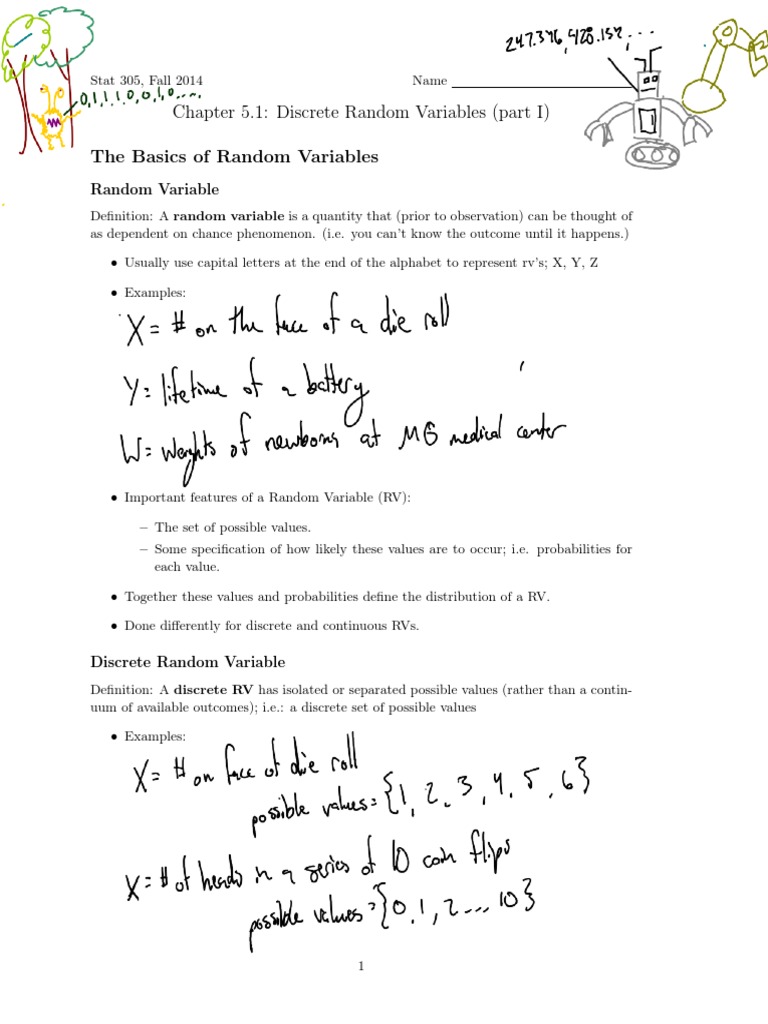 247.376, 428.152, ...
Stat 305, Fall 2014 Name
0,1,1,1,0,0,1,0....
Chapter 5.1: Discrete Random Variables (part I)
The Basics of Random Variables
Random Variable
Definition: A random variable is a quantity that (prior to observation) can be thought of
as dependent on chance phenomenon. (i.e. you can't know the outcome until it happens.)
• Usually use capital letters at the end of the alphabet to represent rv's; X, Y, Z
• Examples:
X = # on the face of a die roll
Y = lifetime of a battery
W = weights of newborns at MG medical center
• Important features of a Random Variable (RV):
– The set of possible values.
– Some specification of how likely these values are to occur; i.e. probabilities for
each value.
• Together these values and probabilities define the distribution of a RV.
• Done differently for discrete and continuous RVs.
Discrete Random Variable
Definition: A discrete RV has isolated or separated possible values (rather than a contin-
uum of available outcomes); i.e.: a discrete set of possible values
• Examples:
X = # on face of die roll
possible values = {1, 2, 3, 4, 5, 6}
X = # of heads in a series of 10 coin flips
possible values = {0, 1, 2 ... 10}
1